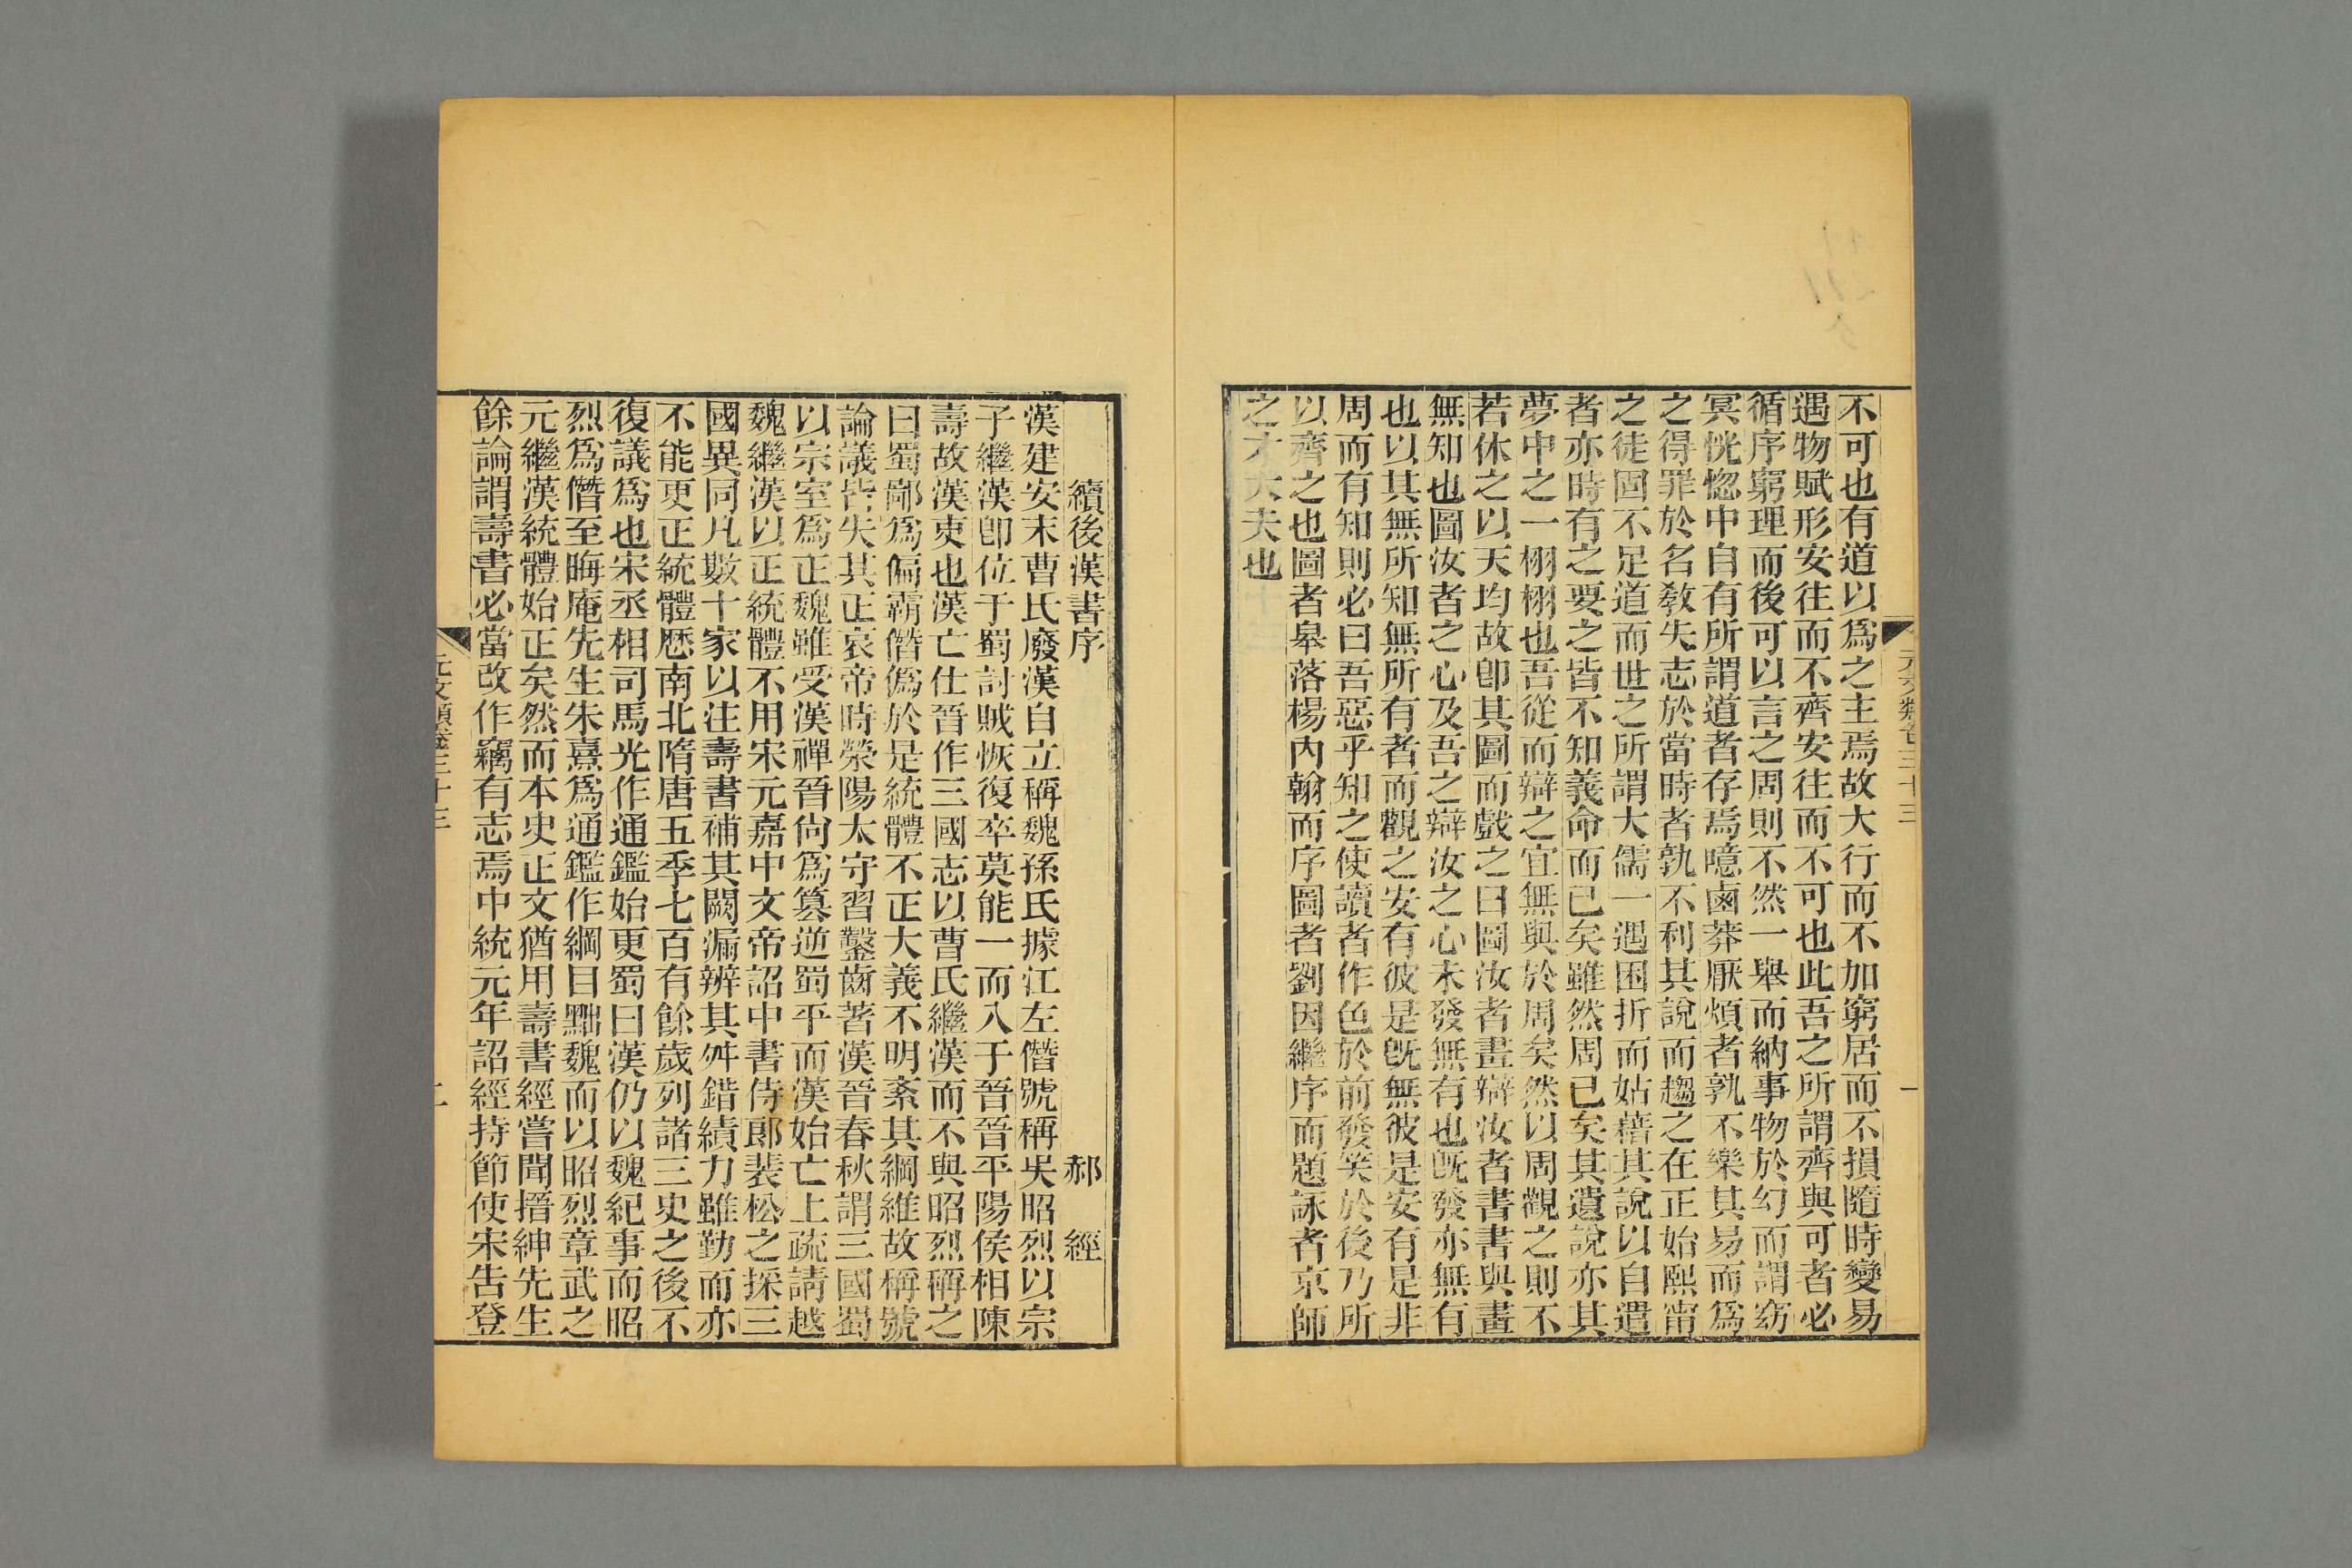 不可也有道以爲之主焉故大行而不加窮居而不損隨時變易
遇物賦形安往而不齊安往而不可也此吾之所謂齊與可者必
循序窮理而後可以言之周則不然一舉而納事物於幻而謂窈
冥恍惚中自有所謂道者存焉噫鹵莽厭煩者孰不樂其易而爲
之得罪於名敎失志於當時者孰不利其說而趨之在正始熙甯
之徒固不足道而世之所謂大儒一遇困折而姑藉其說以自遣
者亦時有之要之皆不知義命而已矣雖然周已矣其遺說亦其
夢中之一栩栩也吾從而辯之宜無與於周矣然以周觀之則不
若休之以天均故卽其圖而戲之曰圖汝者畫辯汝者書書與畫
無知也圖汝者之心及吾之辯汝之心未發無有也旣發亦無有
也以其無所知無所有者而觀之安有彼是旣無彼是安有是非
周而有知則必曰吾惡乎知之使讀者作色於前發笑於後乃所
以齊之也圖者皋落楊內翰而序圖者劉因繼序而題詠者京師
之才大夫也
元文類卷三十三
一
續後漢書序 郝經
漢建安末曹氏廢漢自立稱魏孫氏據江左僭號稱吳昭烈以宗
子繼漢卽位于蜀討賊恢復卒莫能一而入于晉晉平陽侯相陳
壽故漢吏也漢亡仕晉作三國志以曹氏繼漢而不與昭烈稱之
曰蜀鄙爲偏霸僭僞於是統體不正大義不明紊其綱維故稱號
論議皆失其正哀帝時滎陽太守習鑿齒著漢晉春秋謂三國蜀
以宗室爲正魏雖受漢禪晉尙爲篡逆蜀平而漢始亡上疏請越
魏繼漢以正統體不用宋元嘉中文帝詔中書侍郎裴松之採三
國異同凡數十家以注壽書補其闕漏辨其舛錯績力雖勤而亦
不能更正統體歷南北隋唐五季七百有餘歲列諸三史之後不
復議爲也宋丞相司馬光作通鑑始更蜀曰漢仍以魏紀事而昭
烈爲僭至晦庵先生朱熹爲通鑑作綱目黜魏而以昭烈章武之
元繼漢統體始正矣然而本史正文猶用壽書經嘗聞搢紳先生
餘論謂壽書必當改作竊有志焉中統元年詔經持節使宋告登
元文類卷三十三